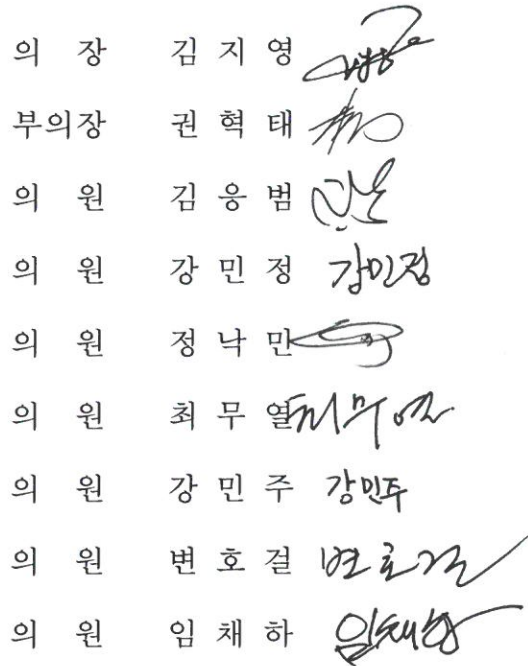 의 장 김 지 영
부의장 권 혁 태
의 원 김 응 범
의 원 강 민 정 강민정
의 원 정 낙 민
의 원 최 무 열 최무열
의 원 강 민 주 강민주
의 원 변 호 걸 변호걸
의 원 임 채 하 임채하